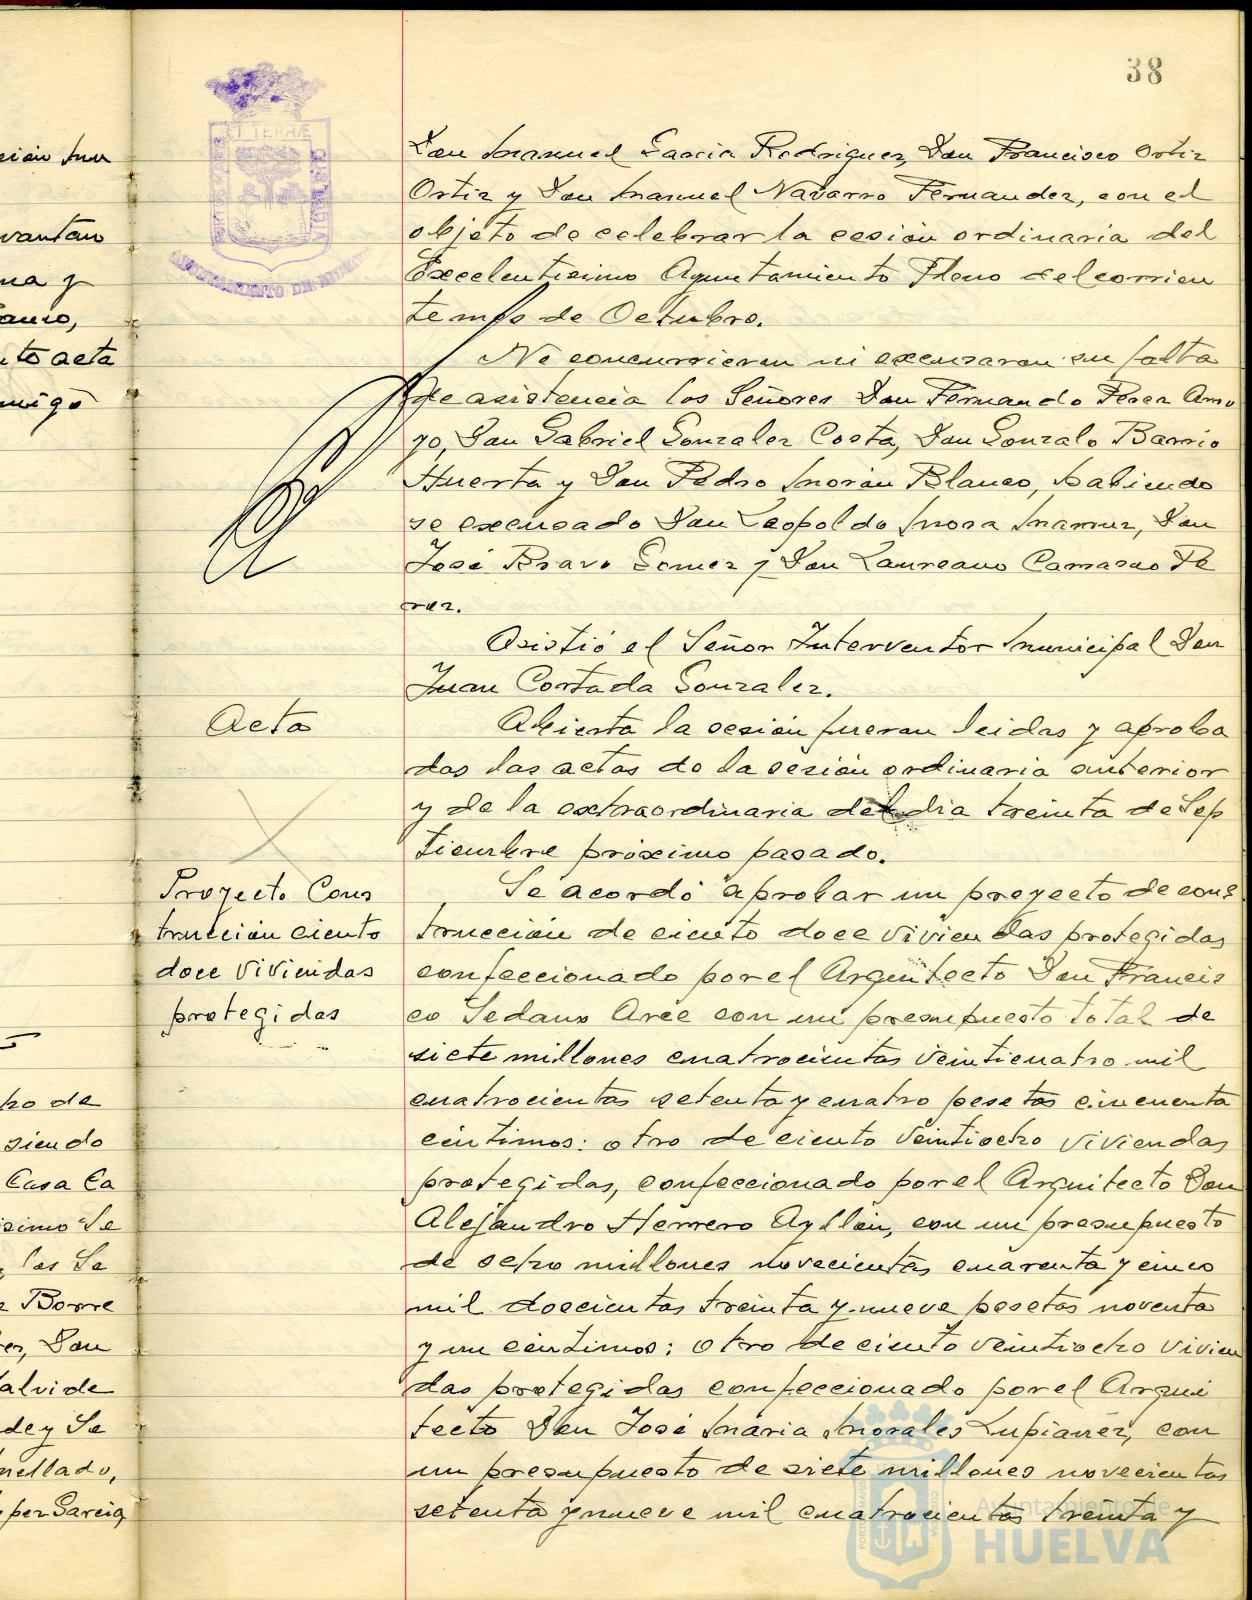 38
ET TERRÆ
AYUNTAMIENTO DE HUELVA
sión
vantan
na y
to acta
migo
cho de
siendo
Casa Ca
simo Se
los Se
Borre
Don
alvide
de y Se
mellado,
per Garcia
Don Manuel Garcia Rodriguez, Don Francisco Ortiz
Ortiz y Don Manuel Navarro Fernandez, con el
objeto de celebrar la cesion ordinaria del
Excelentisimo Ayuntamiento Pleno del corrien
te mes de Octubre.
No concurrieron ni excusaron su falta
de asistencia los Señores Don Fernando Perez Amo
yo, Don Gabriel Gonzalez Costa, Don Gonzalo Barrio
Huerta y Don Pedro Morán Blanco, habiendo
se excusado Don Leopoldo Mora Don
José Bravo Gomez y Don Laureano Carrasco Pe
rez.
Asistió el Señor Interventor Municipal Don
Juan Cortada Gonzalez.
Acta
Abierta la sesión fueron leidas y aproba
das las actas de la sesión ordinaria anterior
y de la extraordinaria del dia treinta de Sep
tiembre próximo pasado.
Proyecto Cons
trucción ciento
doce viviendas
protegidas
Se acordó aprobar un proyecto de cons
trucción de ciento doce viviendas protegidas
confeccionado por el Arquitecto Don Francis
co Sedano Arce con un presupuesto total de
siete millones cuatrocientas veinticuatro mil
cuatrocientas setenta y cuatro pesetas cincuenta
céntimos: otro de ciento veintiocho viviendas
protegidas, confeccionado por el Arquitecto Don
Alejandro Herrero Ayllón, con un presupuesto
de ocho millones novecientas cuarenta y cinco
mil doscientas treinta y nueve pesetas noventa
y un céntimos; otro de ciento veintiocho vivien
das protegidas confeccionado por el Arqui
tecto Don José Maria Morales Lupiañez, con
un presupuesto de siete millones novecientas
setenta y nueve mil cuatrocientas treinta y
Ayuntamiento de
HUELVA